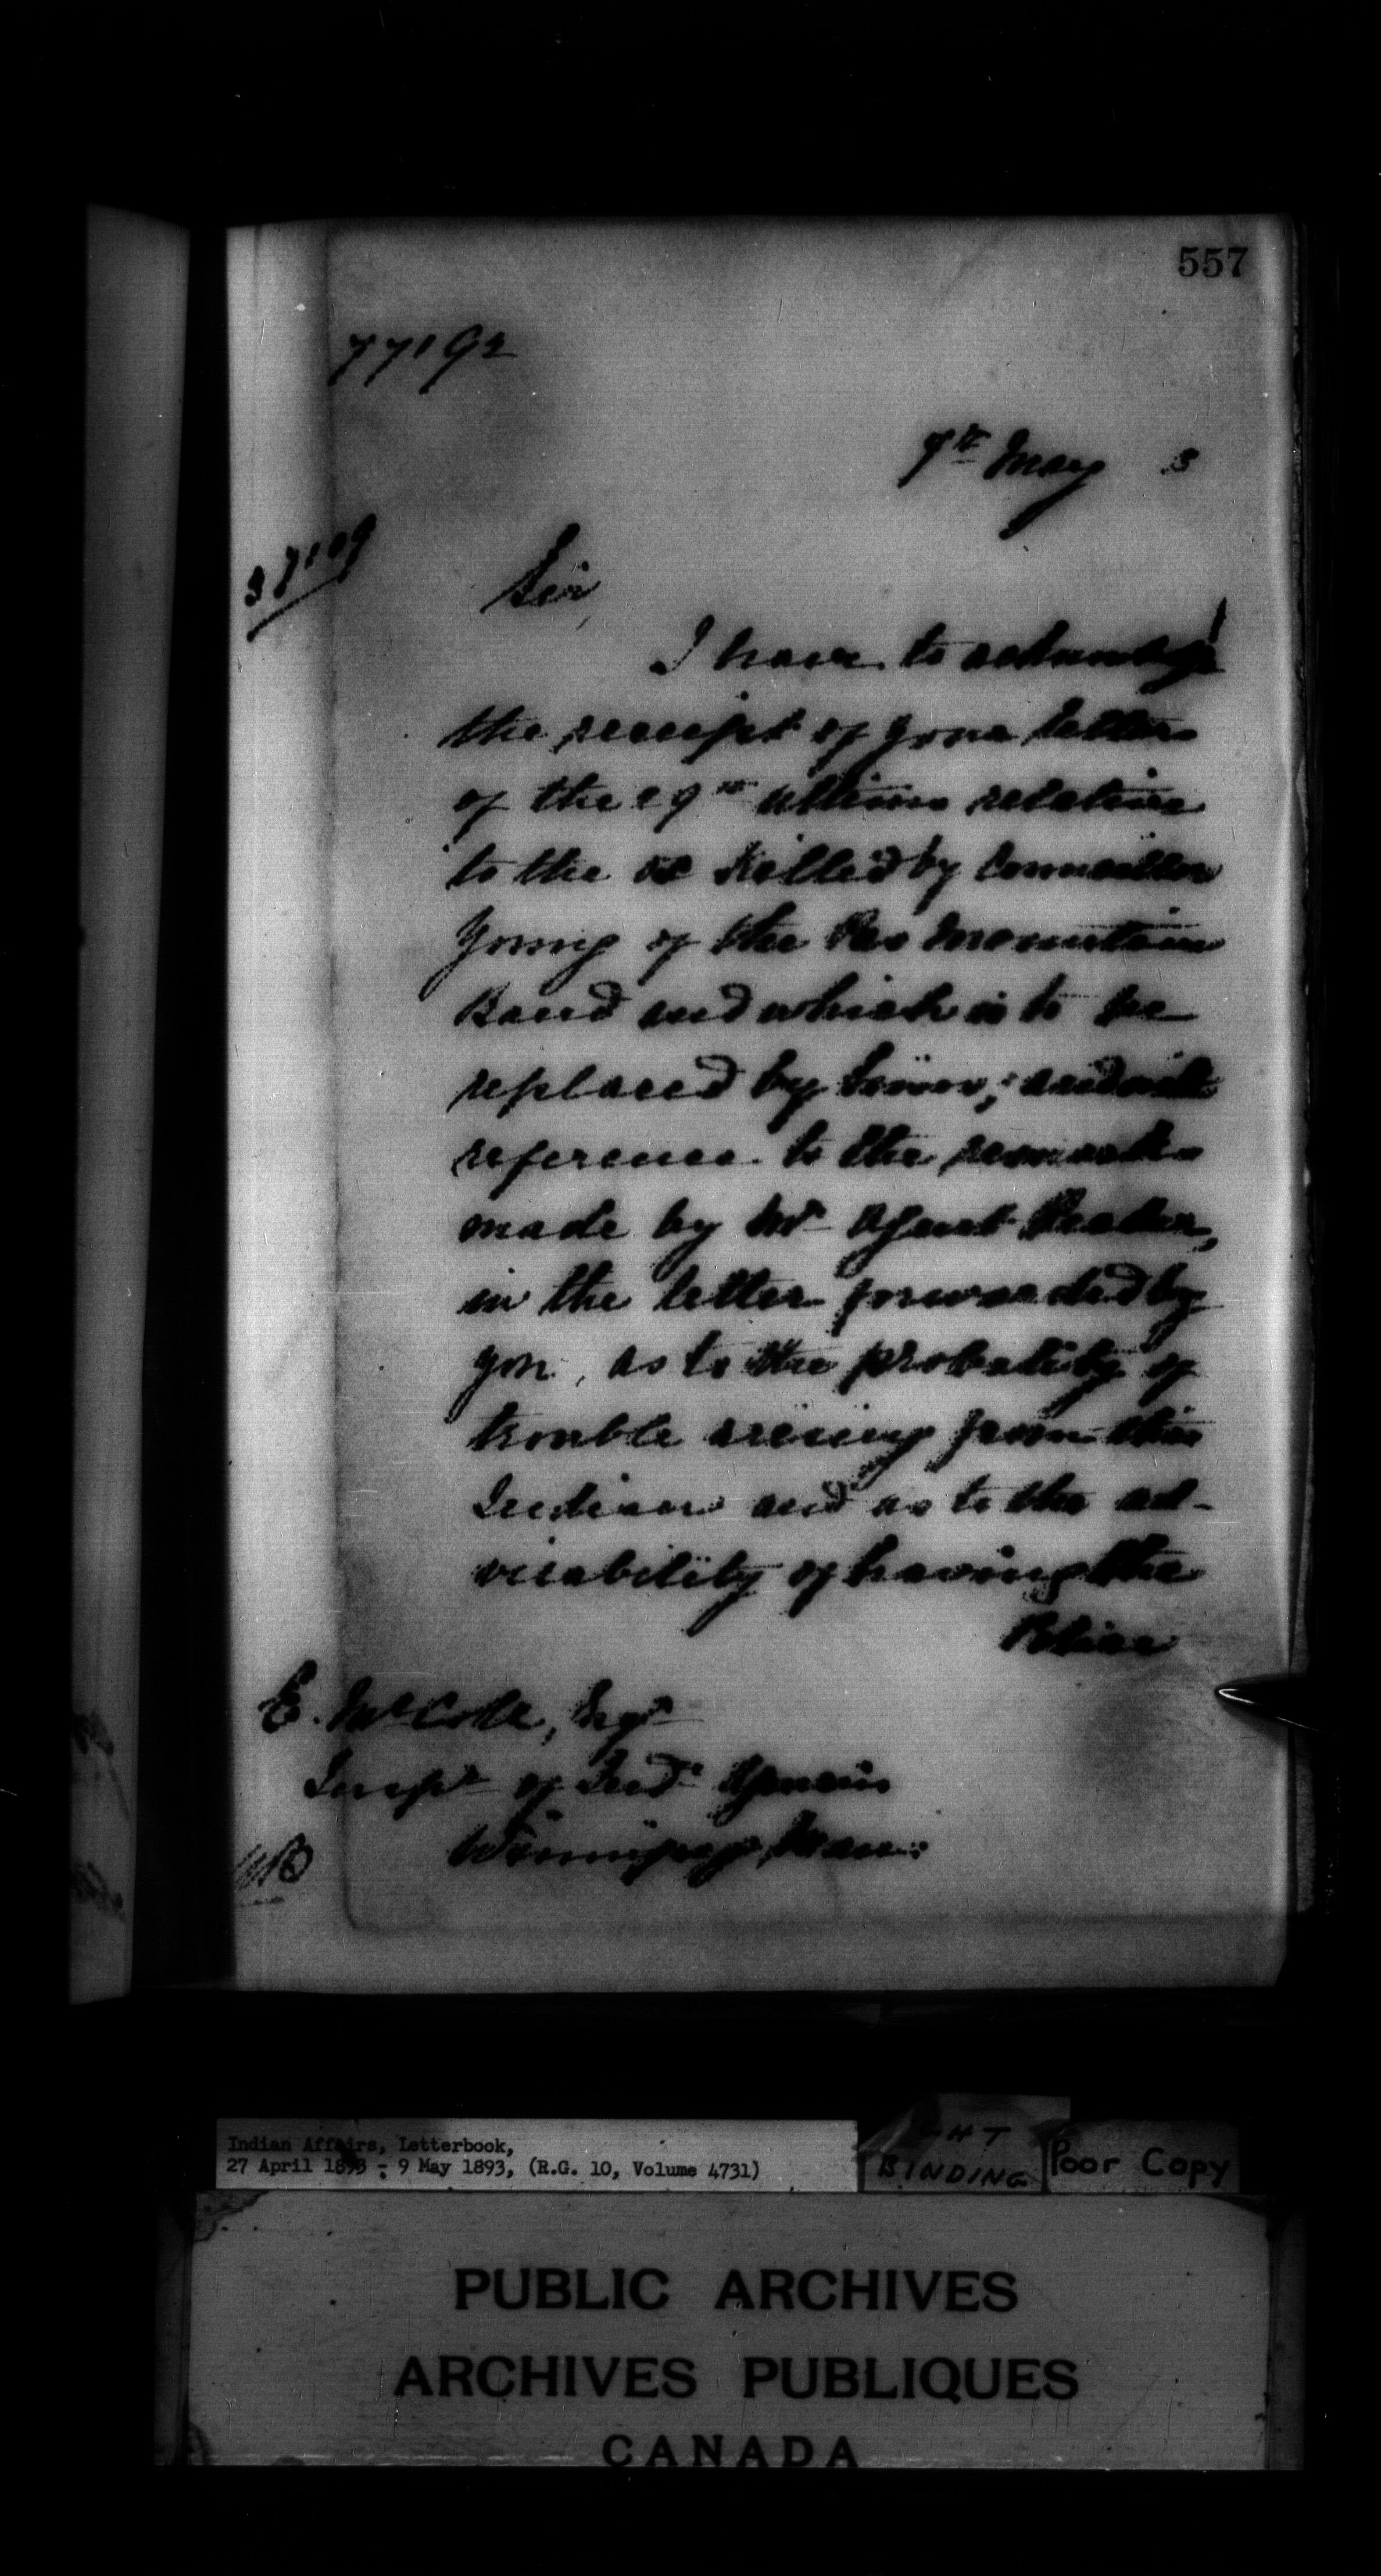 557
77192
7th May 3
37109
Sir,
I have to acknowledge
the receipt of your letter
of the 29th ultimo relative
to the ox killed by Councillor
Young of the Pas Mountain
Band and which is to be
replaced by him; and with
reference to the remarks
made by Mr Agent Reader,
in the letter forwarded by
you, as to the probability of
trouble arising from this
Indian and as to the ad-
visability of having the
Police
E. McColl, Esqr
Inspr of Indn Agencies
Winnipeg, Man.
Indian Affairs, Letterbook,
27 April 1893 - 9 May 1893, (R.G. 10, Volume 4731)
BINDING
Poor Copy
PUBLIC ARCHIVES
ARCHIVES PUBLIQUES
CANADA